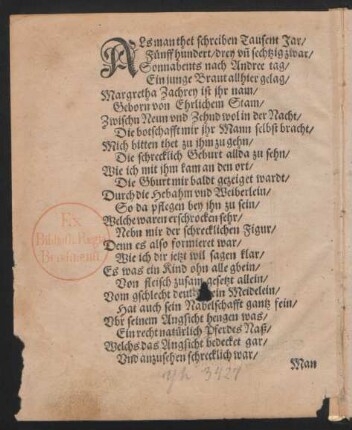 ALs man thet schreiben Tausent Jar/
Fünff hundert/ drey vñ sechtzig zwar/
Sonnabents nach Andree tag/
Ein junge Braut allhier gelag/
Margretha Zachrey ist ihr nam/
Geborn von Ehrlichem Stam/
Zwischn Neun vnd Zehnd wol in der Nacht/
Die botschafft mir ihr Mann selbst bracht/
Mich bitten thet zu ihm zu gehn/
Die schrecklich Geburt allda zu sehn/
Wie ich mit ihm kam an den ort/
Die Gburt mir baldt gezeiget wardt/
Durch die Hebahm vnd Weiberlein/
So da pflegen bey ihn zu sein/
Welche waren erschrocken sehr/
Nebn mir der schrecklichen Figur/
Denn es also formieret war/
Wie ich dir jetzt wil sagen klar/
Es was ein Kind ohn alle gbein/
Von fleisch zusam gesetzt allein/
Vom gschlecht ein Meidelein/
Hat auch sein Nabelschafft gantz fein/
Vbr seinem Angsicht hengen was/
Ein recht natürlich Pferdes Naß/
Welchs das Angsicht bedecket gar/
Vnd anzusehen schrecklich war/
Man
Ex
Biblioth. Regia
Berolinensi.
Yh 3427